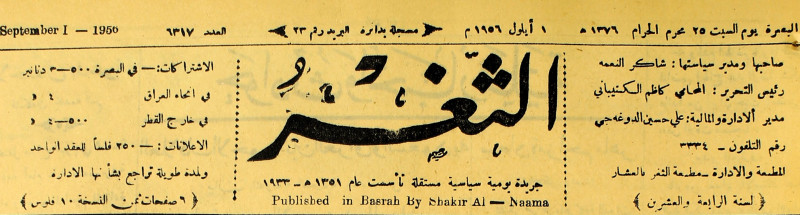 البصرة يوم السبت ٢٥ محرم الحرام ١٣٧٦ ه ١ أيلول ١٩٥٦ م مسجلة بدائرة البريد رقم ٢٣ العدد ٦٣١٧ September I - 1956
صاحبها ومدير سياستها : شاكر النعمه
رئيس التحرير : المحامي كاظم الكشيباني
مدير الادارة والمالية : علي حسين الدوغه جي
رقم التلفون - ٣٣٣٤
المطبعة والادارة - مطبعة الثغر بالعشار
( لسنة الرابعة والعشرين )
الثغر
جريدة يومية سياسية مستقلة تأسست عام ١٣٥١ ه - ١٩٣٣
Published in Basrah By Shakir Al - Naama
الاشتراكات : - في البصرة ٥٠٠-٣ دنانير
في انحاء العراق ٤ د
في خارج القطر ٥٠٠-٤ د
الاعلانات : - ٢٥٠ فلساً للعقد الواحد
ولمدة طويلة تراجع بشأنها الادارة
( ٦ صفحات ثمن النسخة ١٠ فلوس )